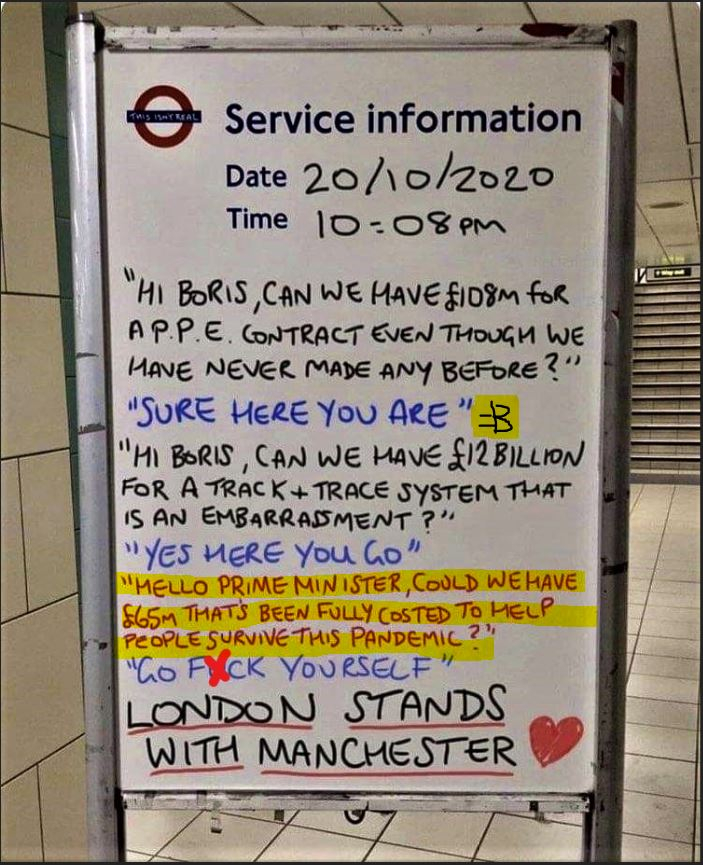 THIS ISN'T REAL
Service information
Date 20/10/2020
Time 10:08PM
"HI BORIS, CAN WE HAVE £108M FOR
A P.P.E. CONTRACT EVEN THOUGH WE
HAVE NEVER MADE ANY BEFORE?"
"SURE HERE YOU ARE" =B
"HI BORIS, CAN WE HAVE £12 BILLION
FOR A TRACK + TRACE SYSTEM THAT
IS AN EMBARRASSMENT?"
"YES HERE YOU GO"
"HELLO PRIME MINISTER, COULD WE HAVE
£65M THAT'S BEEN FULLY COSTED TO HELP
PEOPLE SURVIVE THIS PANDEMIC?"
"GO FXCK YOURSELF"
LONDON STANDS
WITH MANCHESTER